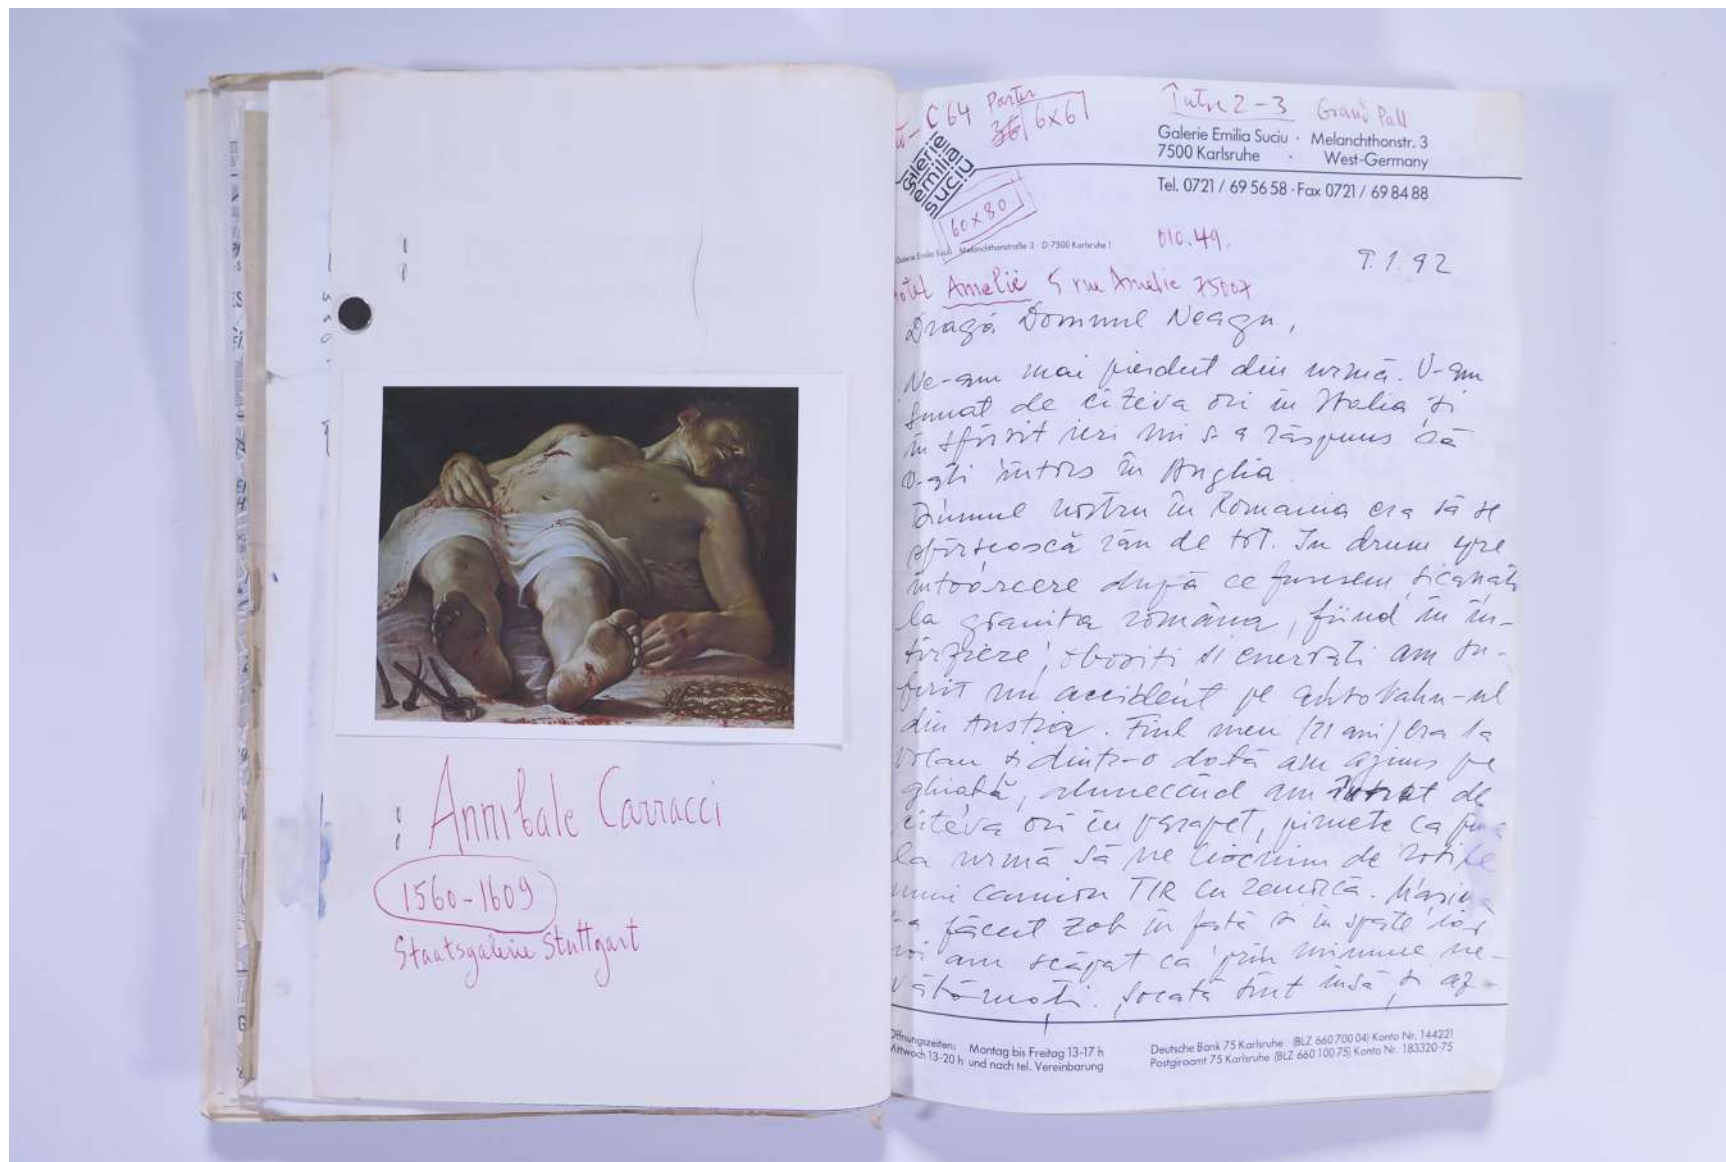 : Annibale Carracci
1560-1609
Staatsgalerie Stuttgart
C 64 Parter
36 6x6
Între 2-3 Grand Pall
galerie
emilia
suciu
60x80
Galerie Emilia Suciu · Melanchthonstr. 3
7500 Karlsruhe · West-Germany
Tel. 0721 / 69 56 58 · Fax 0721 / 69 84 88
Galerie Emilia Suciu Melanchthonstraße 3 · D-7500 Karlsruhe 1
010.49.
9.1.92
Hotel Amelie 5 rue Amelie 75007
Dragă Domnul Neagu,
Ne-am mai pierdut din urmă. V-am
sunat de cîteva ori in Italia și
în sfîrsit ieri mi s-a răspuns că
v-ați întors în Anglia.
Drumul nostru în Romania era să se
sfîrsească rău de tot. In drum spre
intoarcere după ce fusesem sicanați
la granita româna, fiind în în-
tîrziere, obositi si enervati am su-
ferit un accident pe autobahn-ul
din Austria. Fiul meu (21 ani) era la
volan si dintr-o dată am ajuns pe
ghiață, alunecând am intrat de
cîteva ori in parapet, pimete ca pînă
la urmă să ne ciocnim de rotile
unui camion TIR cu remorcă. Masina
s-a făcut zob în fată si in spate iar
noi am scăpat ca prin minune ne-
vătămați. Socată sînt însă și az-
Öffnungszeiten: Montag bis Freitag 13-17 h
Mittwoch 13-20 h und nach tel. Vereinbarung
Deutsche Bank 75 Karlsruhe (BLZ 660 700 04) Konto Nr. 144221
Postgiroamt 75 Karlsruhe (BLZ 660 100 75) Konto Nr. 183320-75